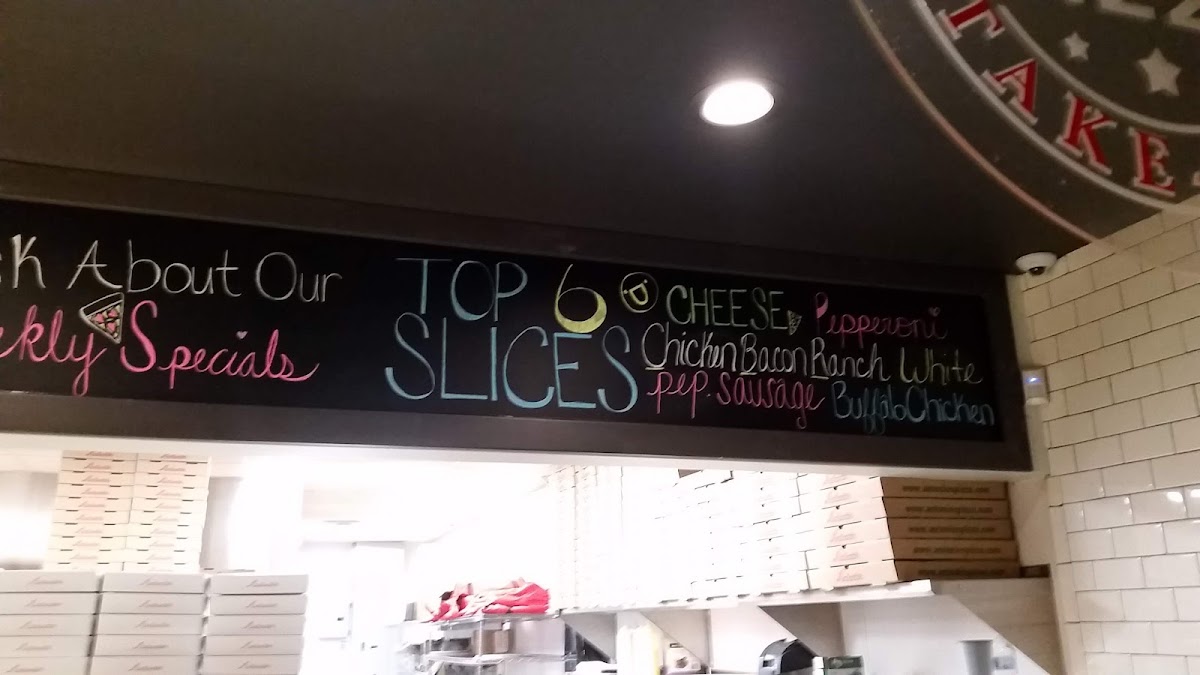 About Our
Specials
TOP 6
SLICES
CHEESE Pepperoni
Chicken Bacon Ranch White
pep. sausage Buffalo Chicken
TAKE